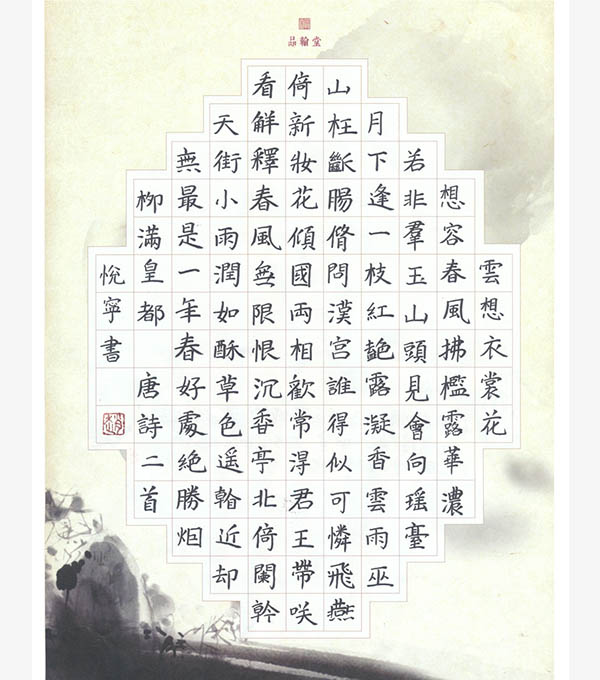 品翰堂
雲想衣裳花
想容春風拂檻露華濃
若非羣玉山頭見會向瑤臺
月下逢一枝紅艷露凝香雲雨巫
山枉斷腸借問漢宮誰得似可憐飛燕
倚新妝花傾國兩相歡常得君王帶咲
看解釋春風無限恨沉香亭北倚闌幹
天街小雨潤如酥草色遙看近却
無最是一年春好處絕勝烟
柳滿皇都 唐詩二首
悅寧書